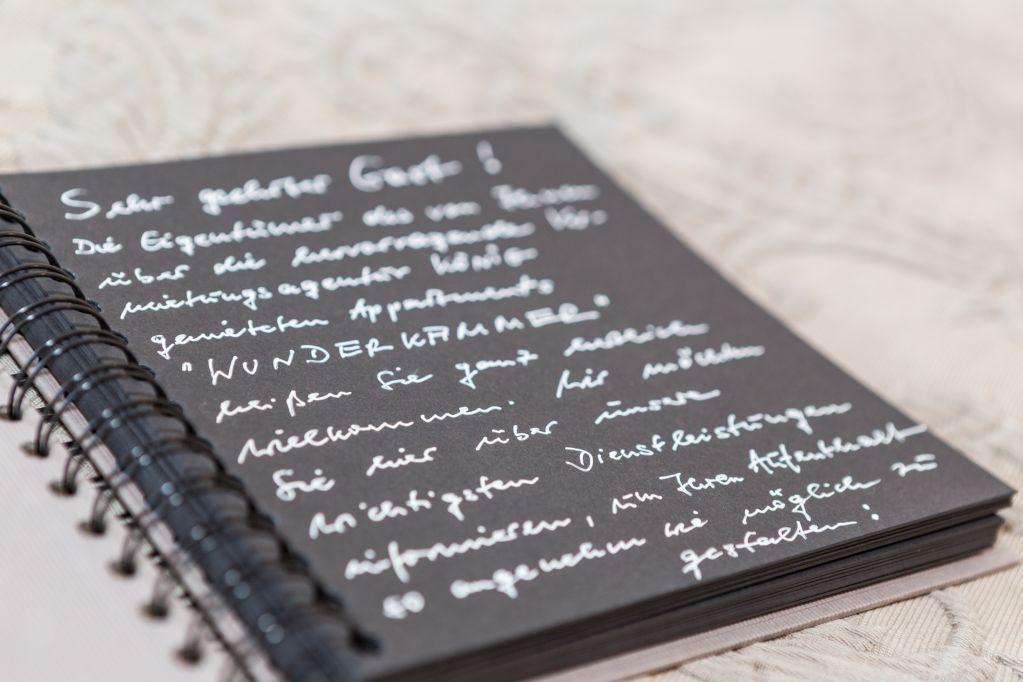 Sehr geehrter Gast!
Die Eigentümer des von Ihnen
über die hervorragende Ver-
mietungsagentur König
gemieteten Appartments
"WUNDERKAMMER"
heißen Sie ganz herzlich
willkommen. Wir möchten
Sie hier über unsere
wichtigsten Dienstleistungen
informieren, um Ihren Aufenthalt
so angenehm wie möglich zu
gestalten: